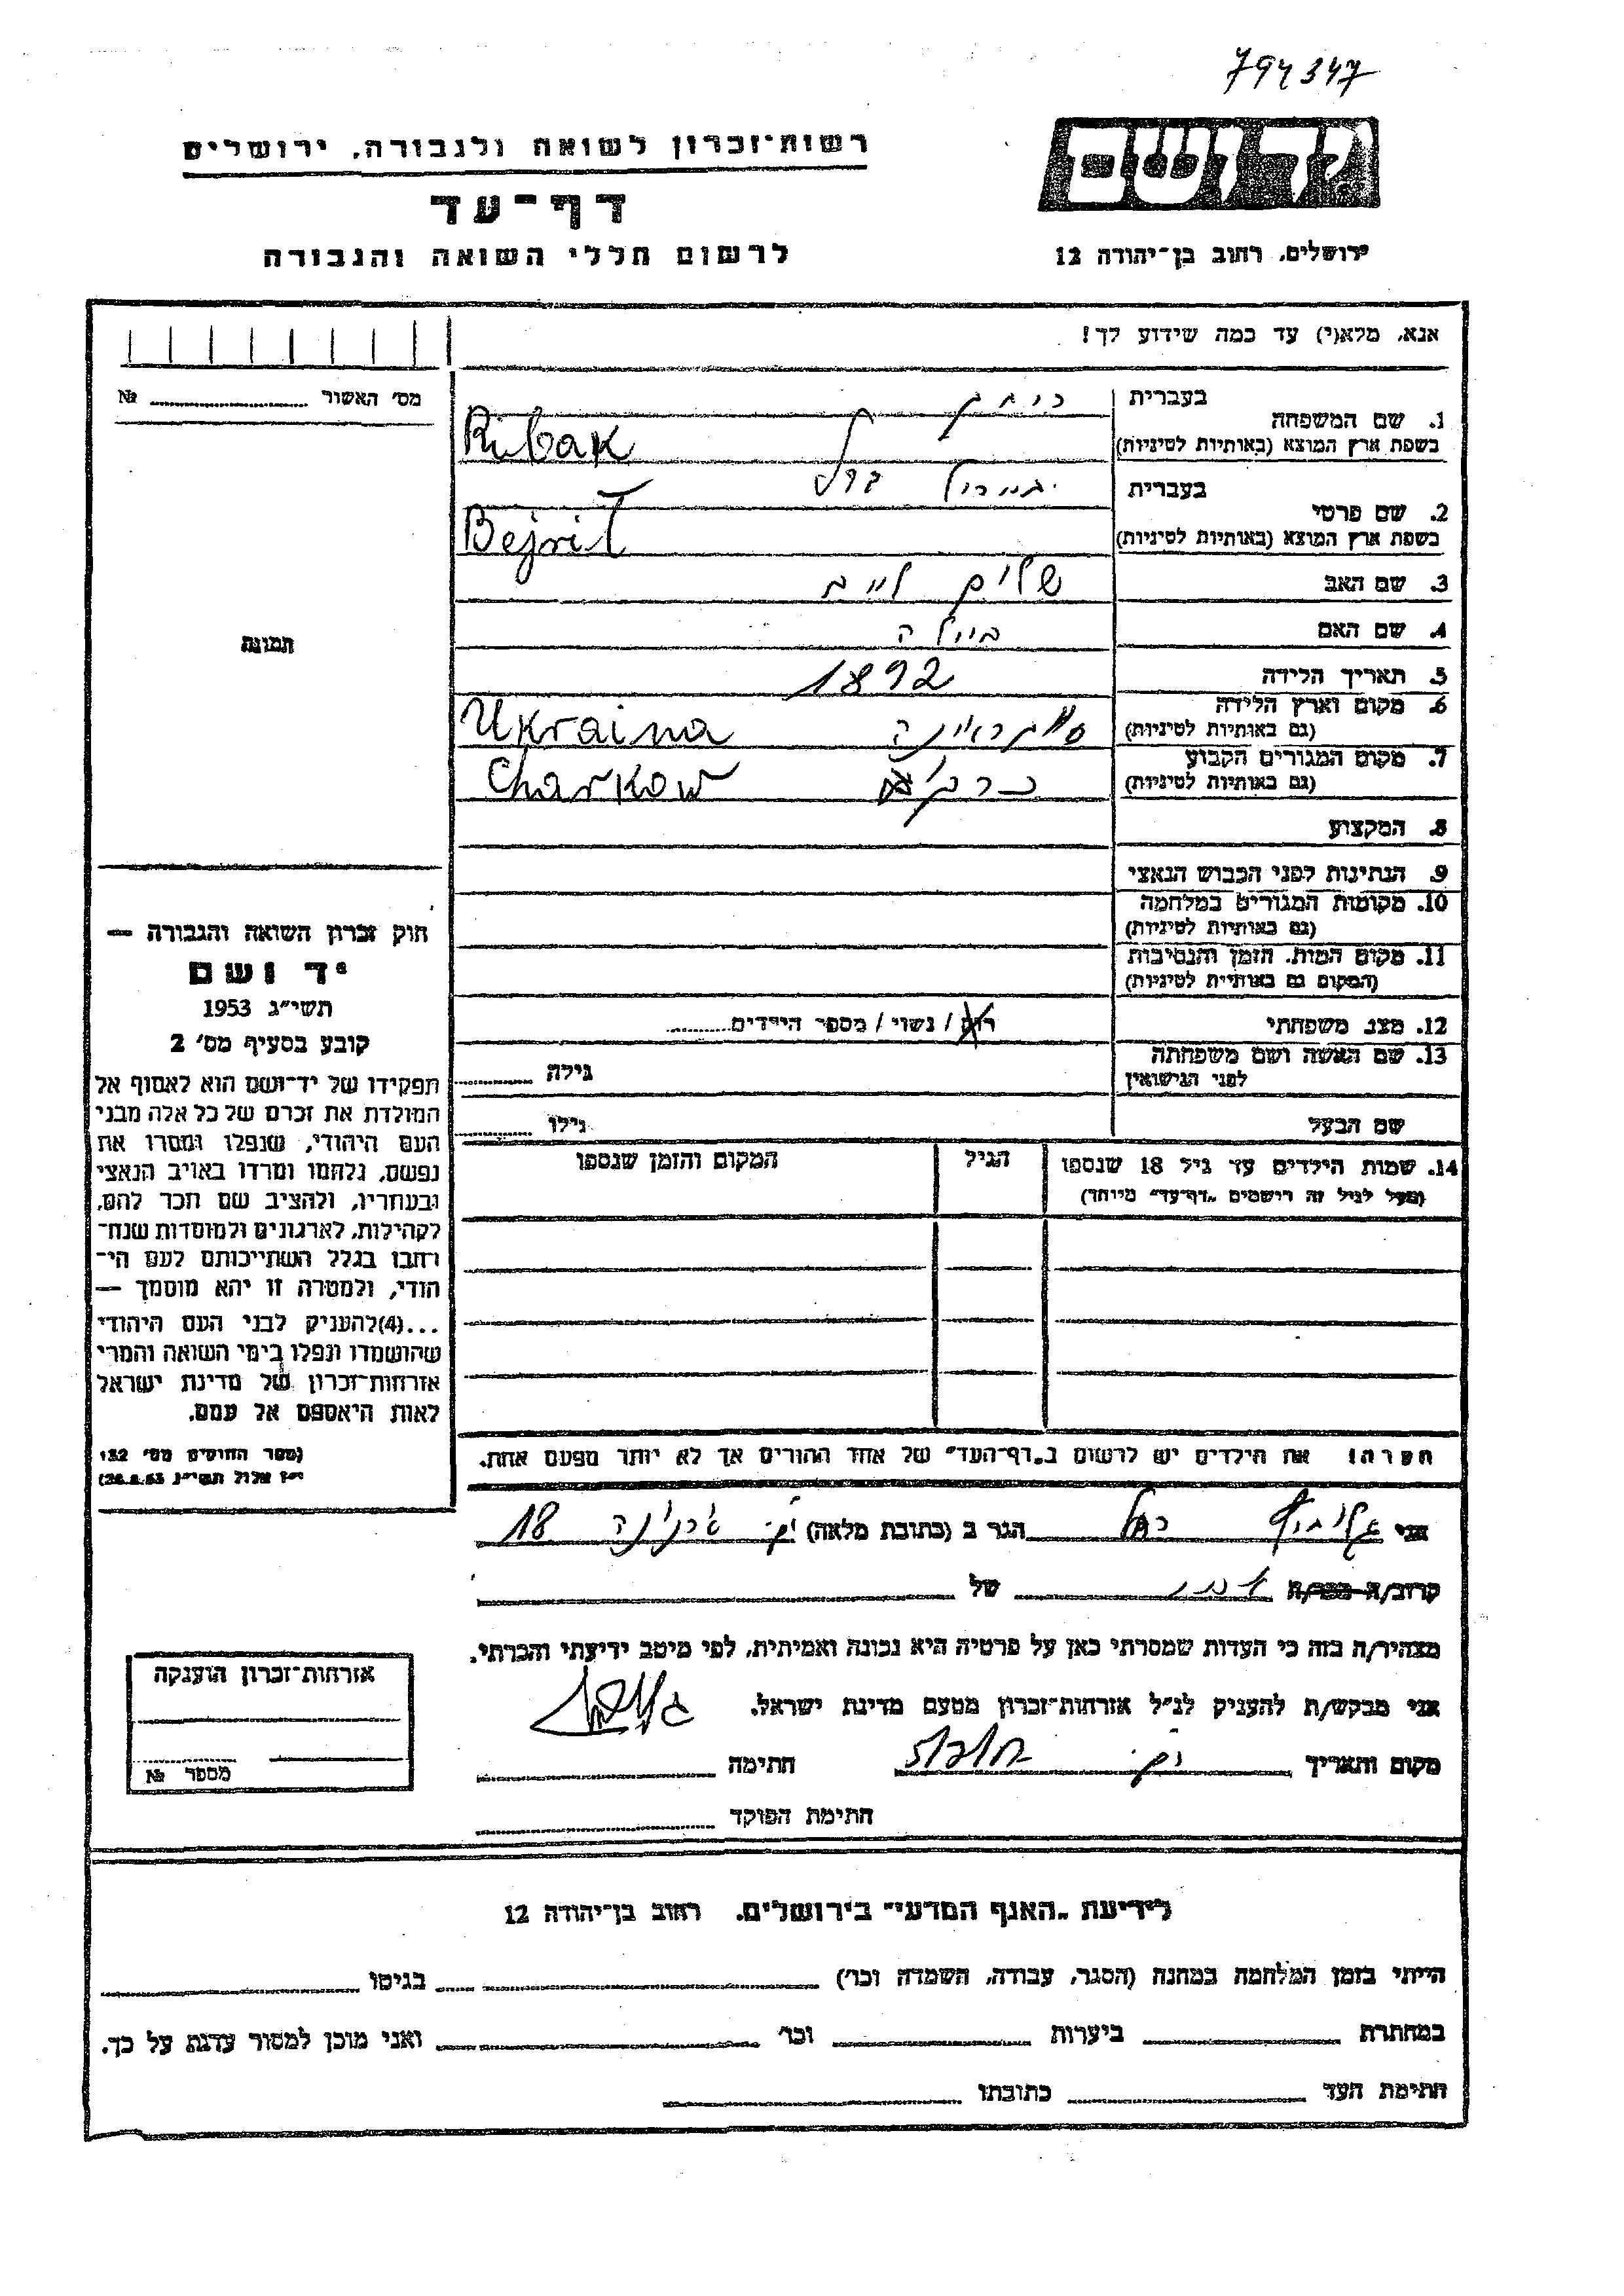 794347
רשות־זכרון לשואה ולגבורה. ירושלים
דף־עד
לרשום חללי השואה והגבורה
יד ושם
ירושלים. רחוב בן־יהודה 12
אנא, מלא(י) עד כמה שידוע לך!
מס׳ האשור №
1. שם המשפחה
בעברית
בשפת ארץ המוצא (באותיות לטיניות) Ribak
2. שם פרטי
בעברית
בשפת ארץ המוצא (באותיות לטיניות) Bejrit
3. שם האב
4. שם האם
5. תאריך הלידה 1892
6. מקום וארץ הלידה
(גם באותיות לטיניות) Ukraina
7. מקום המגורים הקבוע
(גם באותיות לטיניות) Charkow
8. המקצוע
9. הנתינות לפני הכבוש הנאצי
10. מקומות המגורים במלחמה
(גם באותיות לטיניות)
11. מקום המות. הזמן והנסיבות
(המקום גם באותיות לטיניות)
12. מצב משפחתי רווק / נשוי / מספר הילדים
13. שם האשה ושם משפחתה
לפני הנישואין גילה
שם הבעל גילו
14. שמות הילדים עד גיל 18 שנספו הגיל המקום והזמן שנספו
(מעל לגיל זה רישמים „דף־עד" מיוחד)
הערה! את הילדים יש לרשום ב„דף־העד" של אחד ההורים אך לא יותר מפעם אחת.
תמונה
חוק זכרון השואה והגבורה —
יד ושם
תשי״ג 1953
קובע בסעיף מס׳ 2
תפקידו של יד־ושם הוא לאסוף אל
המולדת את זכרם של כל אלה מבני
העם היהודי, שנפלו ומסרו את
נפשם, נלחמו ומרדו באויב הנאצי
ובעוזריו, ולהציב שם וזכר להם,
לקהילות, לארגונים ולמוסדות שנח־
רבו בגלל השתייכותם לעם הי־
הודי, ולמטרה זו יהא מוסמך —
...(4)להעניק לבני העם היהודי
שהושמדו ונפלו בימי השואה והמרי
אזרחות־זכרון של מדינת ישראל
לאות היאספם אל עמם.
(ספר החוקים מס׳ 132
י״ז אלול תשי״ג 28.8.53)
אני הגר ב (כתובת מלאה) 18
קרוב/ה מכר/ה של
מצהיר/ה בזה כי העדות שמסרתי כאן על פרטיה היא נכונה ואמיתית, לפי מיטב ידיעתי והכרתי.
אני מבקש/ת להעניק לנ״ל אזרחות־זכרון מטעם מדינת ישראל.
מקום ותאריך חתימה
חתימת הפוקד
אזרחות־זכרון הוענקה
מספר №
לידיעת „האגף המדעי" בירושלים. רחוב בן־יהודה 12
הייתי בזמן המלחמה במחנה (הסגר, עבודה, השמדה וכו׳) בגיטו
במחתרת ביערות וכו׳ ואני מוכן למסור עדות על כך.
חתימת העד כתובתו